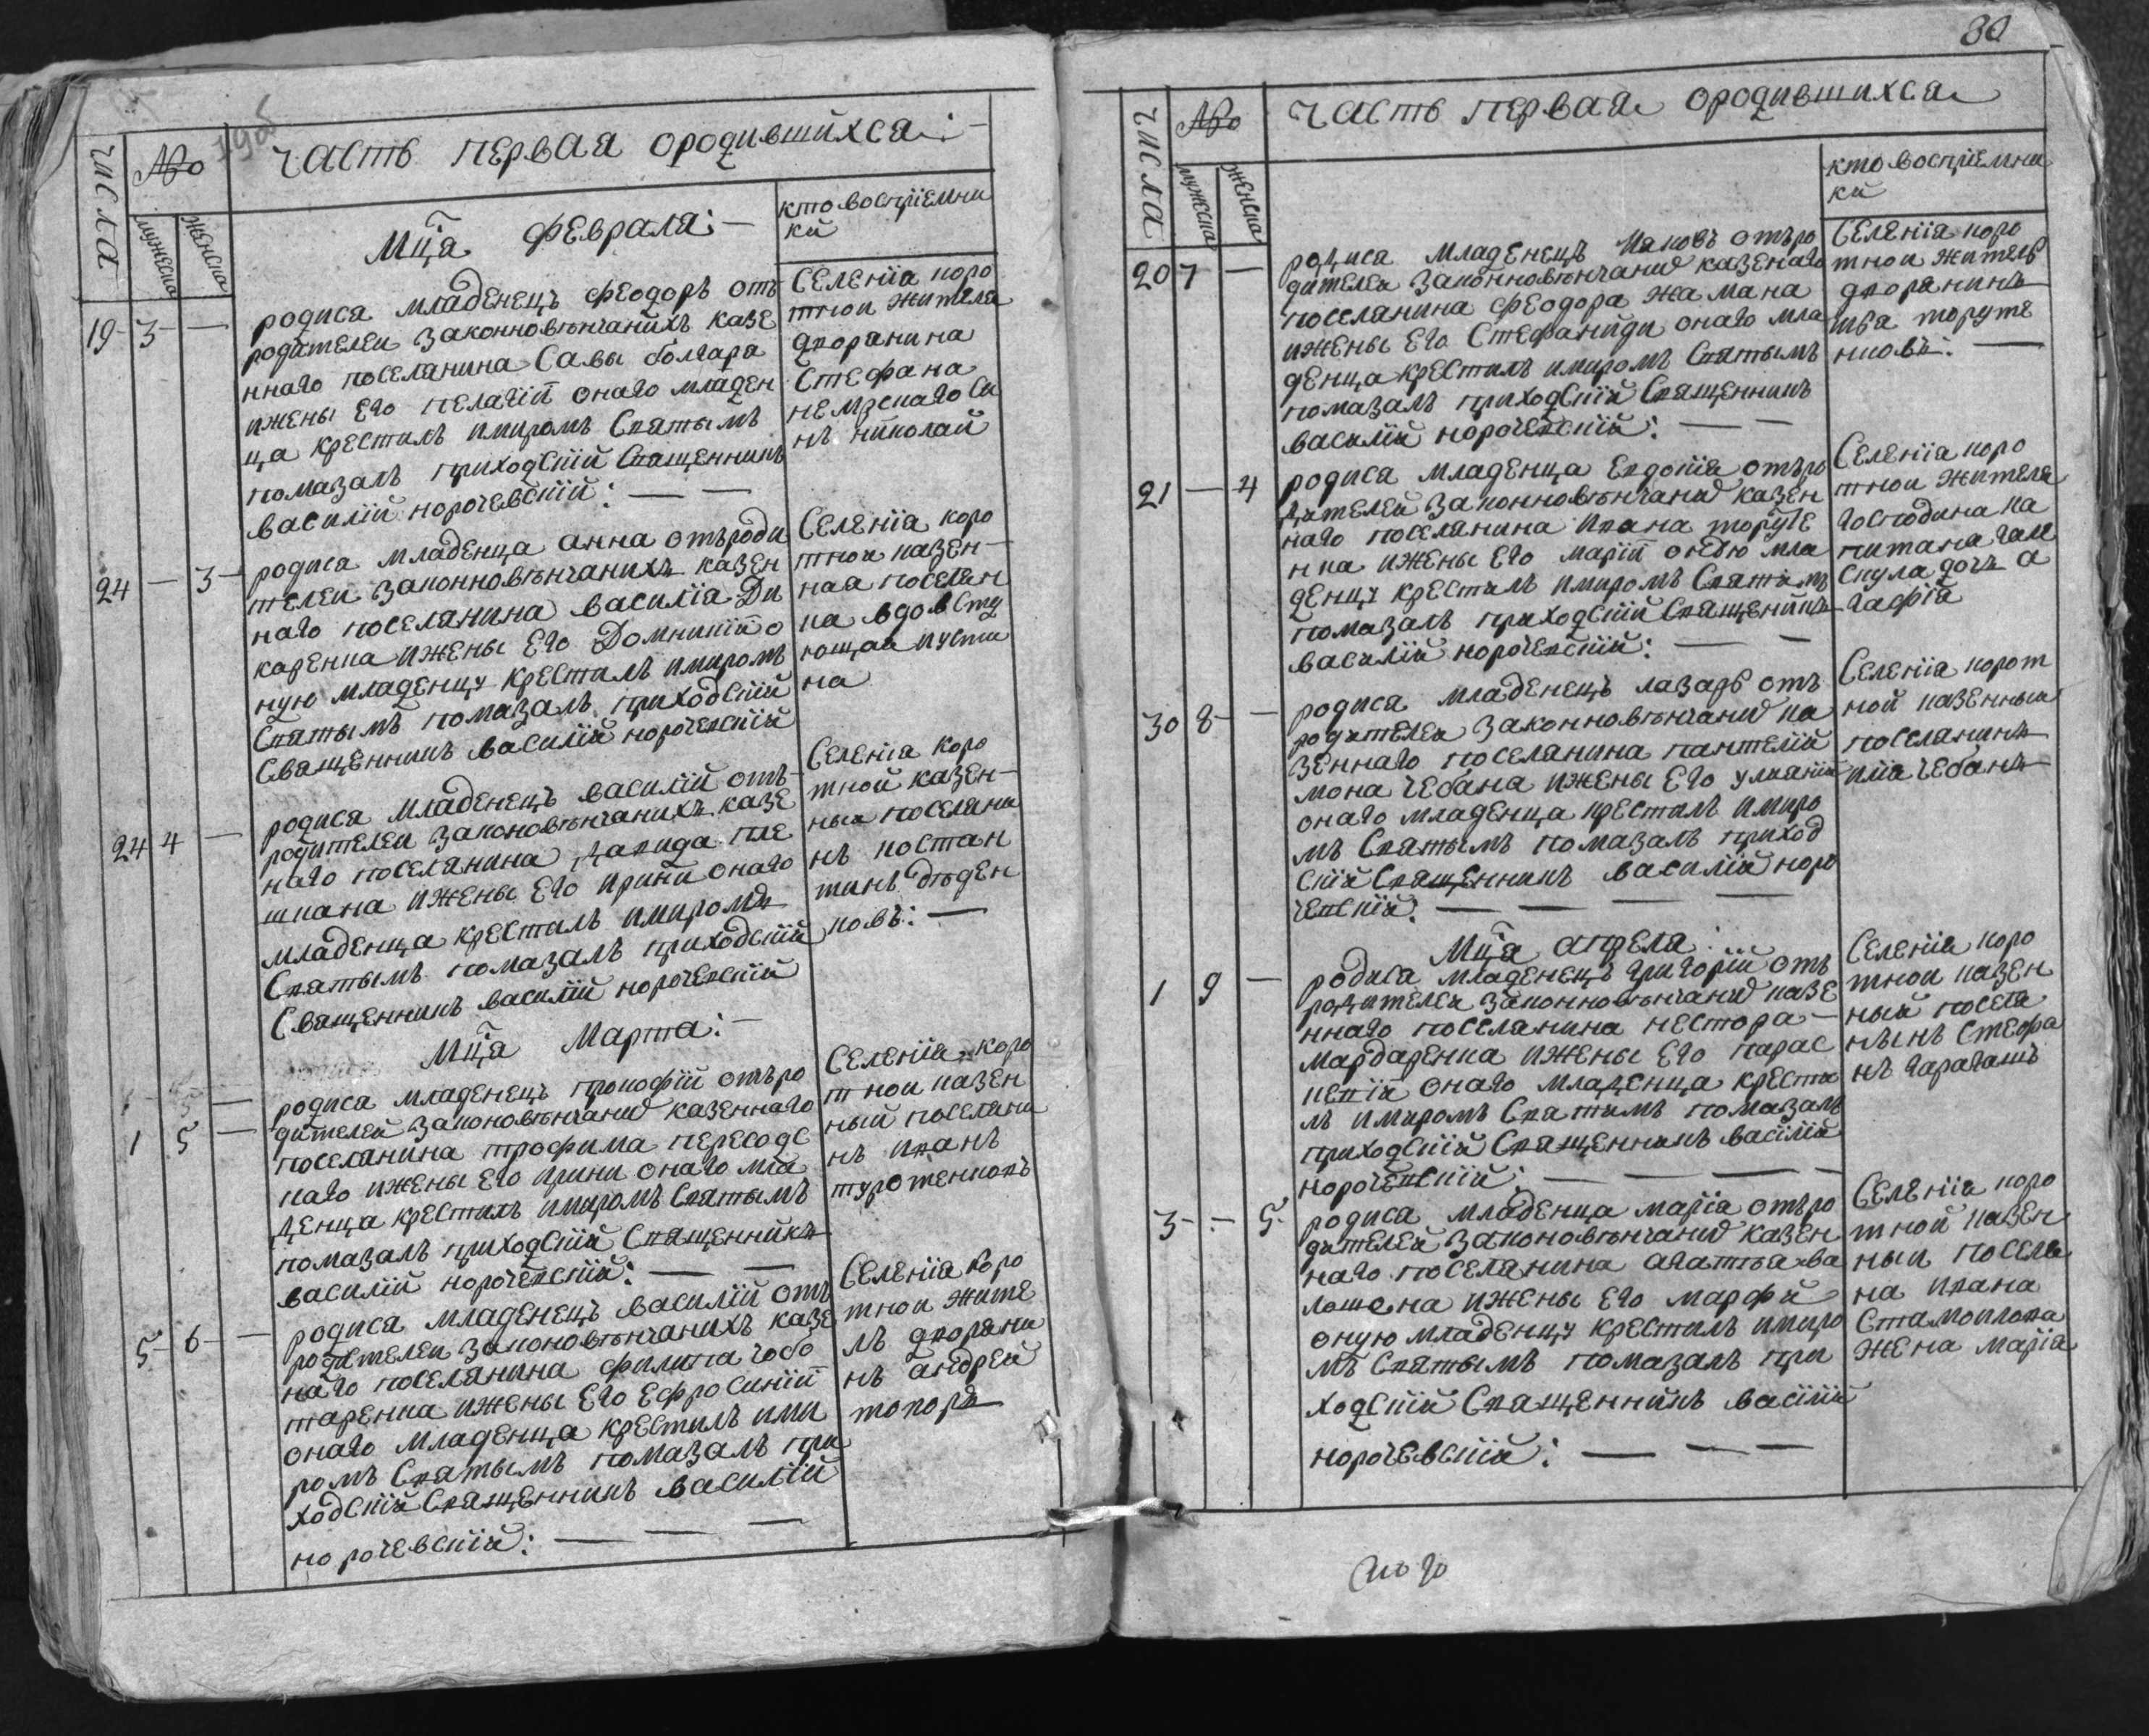 часть первая ородившихся:
числа
№о
мужеска
женска
Мца февраля:
кто восприемни
ки
19 3 —
родися младенецъ феодоръ отъ
родителей законновѣнчанихъ казе
ннаго поселянина Савы болгара
ижены его пелагіи онаго младен
ца крестилъ имиромъ Святымъ
помазалъ приходскій Священникъ
василій норочевскій: — —
Селенія коро
тной жителя
дворянина
Стефана
немзскаго Си
нъ николай
24 — 3
родися младенца анна отъроди
телей законновѣнчанихъ казен
наго поселянина василія Ди
каренка ижены его Домникіи о
ную младенцу крестилъ имиромъ
Святымъ помазалъ приходскій
Священникъ василій норочевскій
Селенія коро
тной казен
ная поселян
ка вдовству
ющая иусти
на
24 4 —
родися младенецъ василій отъ
родителей законовѣнчанихъ казе
наго поселянина давида пле
шкана ижены его ирини онаго
младенца крестилъ имиромъ
Святымъ помазалъ приходскій
Священникъ василій норочевскій
Селенія коро
тной казен
ный поселяни
нъ костан
тинъ дѣден
ковъ: —
Мца Марта:
1 5 —
родися младенецъ прокофій отъро
дителей законовѣнчаних казеннаго
поселянина трофима пересодс
каго ижены его ирини онаго мла
денца крестилъ имиромъ Святымъ
помазалъ приходскій Священникъ
василій норочевскій: — —
Селенія коро
тной казен
ный поселяни
нъ иванъ
туротенковъ
5 6 —
родися младенецъ василій отъ
родителей законовѣнчанихъ казе
наго поселянина филипа гобо
таренка ижены его ефросиніи
онаго младенца крестилъ ими
ромъ Святымъ помазалъ при
ходскій Священникъ василій
норочевскій: — — —
Селенія коро
тной жите
лъ дворяни
нъ андрей
топоръ
30
часть первая ородившихся
числа
№о
мужеска
женска
кто восприемни
ки
20 7 —
родися младенецъ Иаковъ отъро
дителей законновѣнчаних казенаго
поселянина феодора жамана
ижены его Стефаниди онаго мла
денца крестилъ имиромъ Святымъ
помазалъ приходскій Священникъ
василій норочевскій: — —
Селенія коро
тной житель
дворянинъ
ива торуте
нковъ: —
21 — 4
родися младенца Евдокія отъро
дителей законновѣнчаних казен
наго поселянина ивана торуте
нка ижены его маріи оную мла
денцу крестилъ имиромъ Святимъ
помазалъ приходскій Священникъ
василій норочевскій: — —
Селенія коро
тной жителя
господина ка
питана гали
Скула дочъ а
гафія
30 8 —
родися младенецъ лазарь отъ
родителей законновѣнчаних ка
зеннаго поселянина пантелій
мона чебана ижены его улиянии
онаго младенца крестилъ имиро
мъ Святымъ помазалъ приход
скій Священникъ василій норо
чевскій: — — — —
Селенія корот
ной казенный
поселянинъ
илія чебанъ
Мца апреля:
1 9 —
родися младенецъ григорій отъ
родителей законновѣнчаних казе
ннаго поселянина нестора
мардаренка ижены его парас
кевіи онаго младенца крести
лъ имиромъ Святимъ помазалъ
приходскій Священникъ василій
норочевскій: — — —
Селенія коро
тной казен
ный поселя
нынъ Стефа
нъ гарагашъ
3 — 5
родися младенца марія отъро
дителей законовѣнчаних казен
наго поселянина агатія ва
лошона ижены его марфи
оную младенцу крестилъ имиро
мъ Святымъ помазалъ при
ходскій Священникъ василій
норочевскій: — — —
Селенія коро
тной казен
ный поселя
на ивана
Стамоилова
жена марія